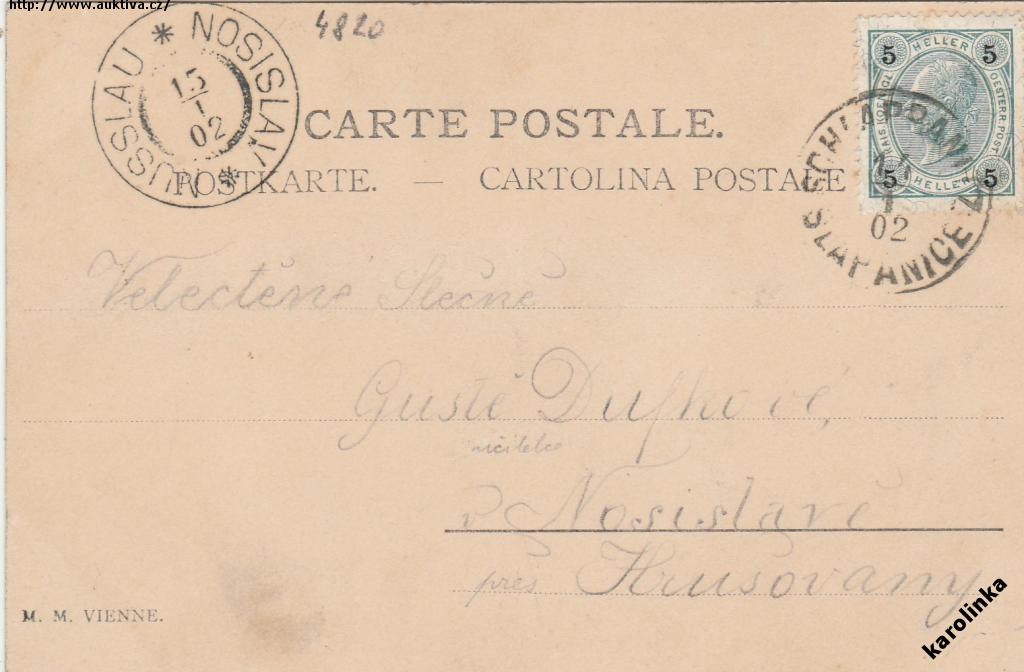 http://www.auktiva.cz/
4820
NUSSLAU * NOSISLAV *
15
I
02
CARTE POSTALE.
POSTKARTE. — CARTOLINA POSTALE
5 HELLER 5
KAIS. KOENIGL. OESTERR. POST
5 HELLER 5
SCHLAPPANITZ
1
02
ŠLAPANICE
Velectěné Slečně
Gustě Dufkové,
učitelce
v Nosislavě
přes Hrušovany
M. M. VIENNE.
karolinka